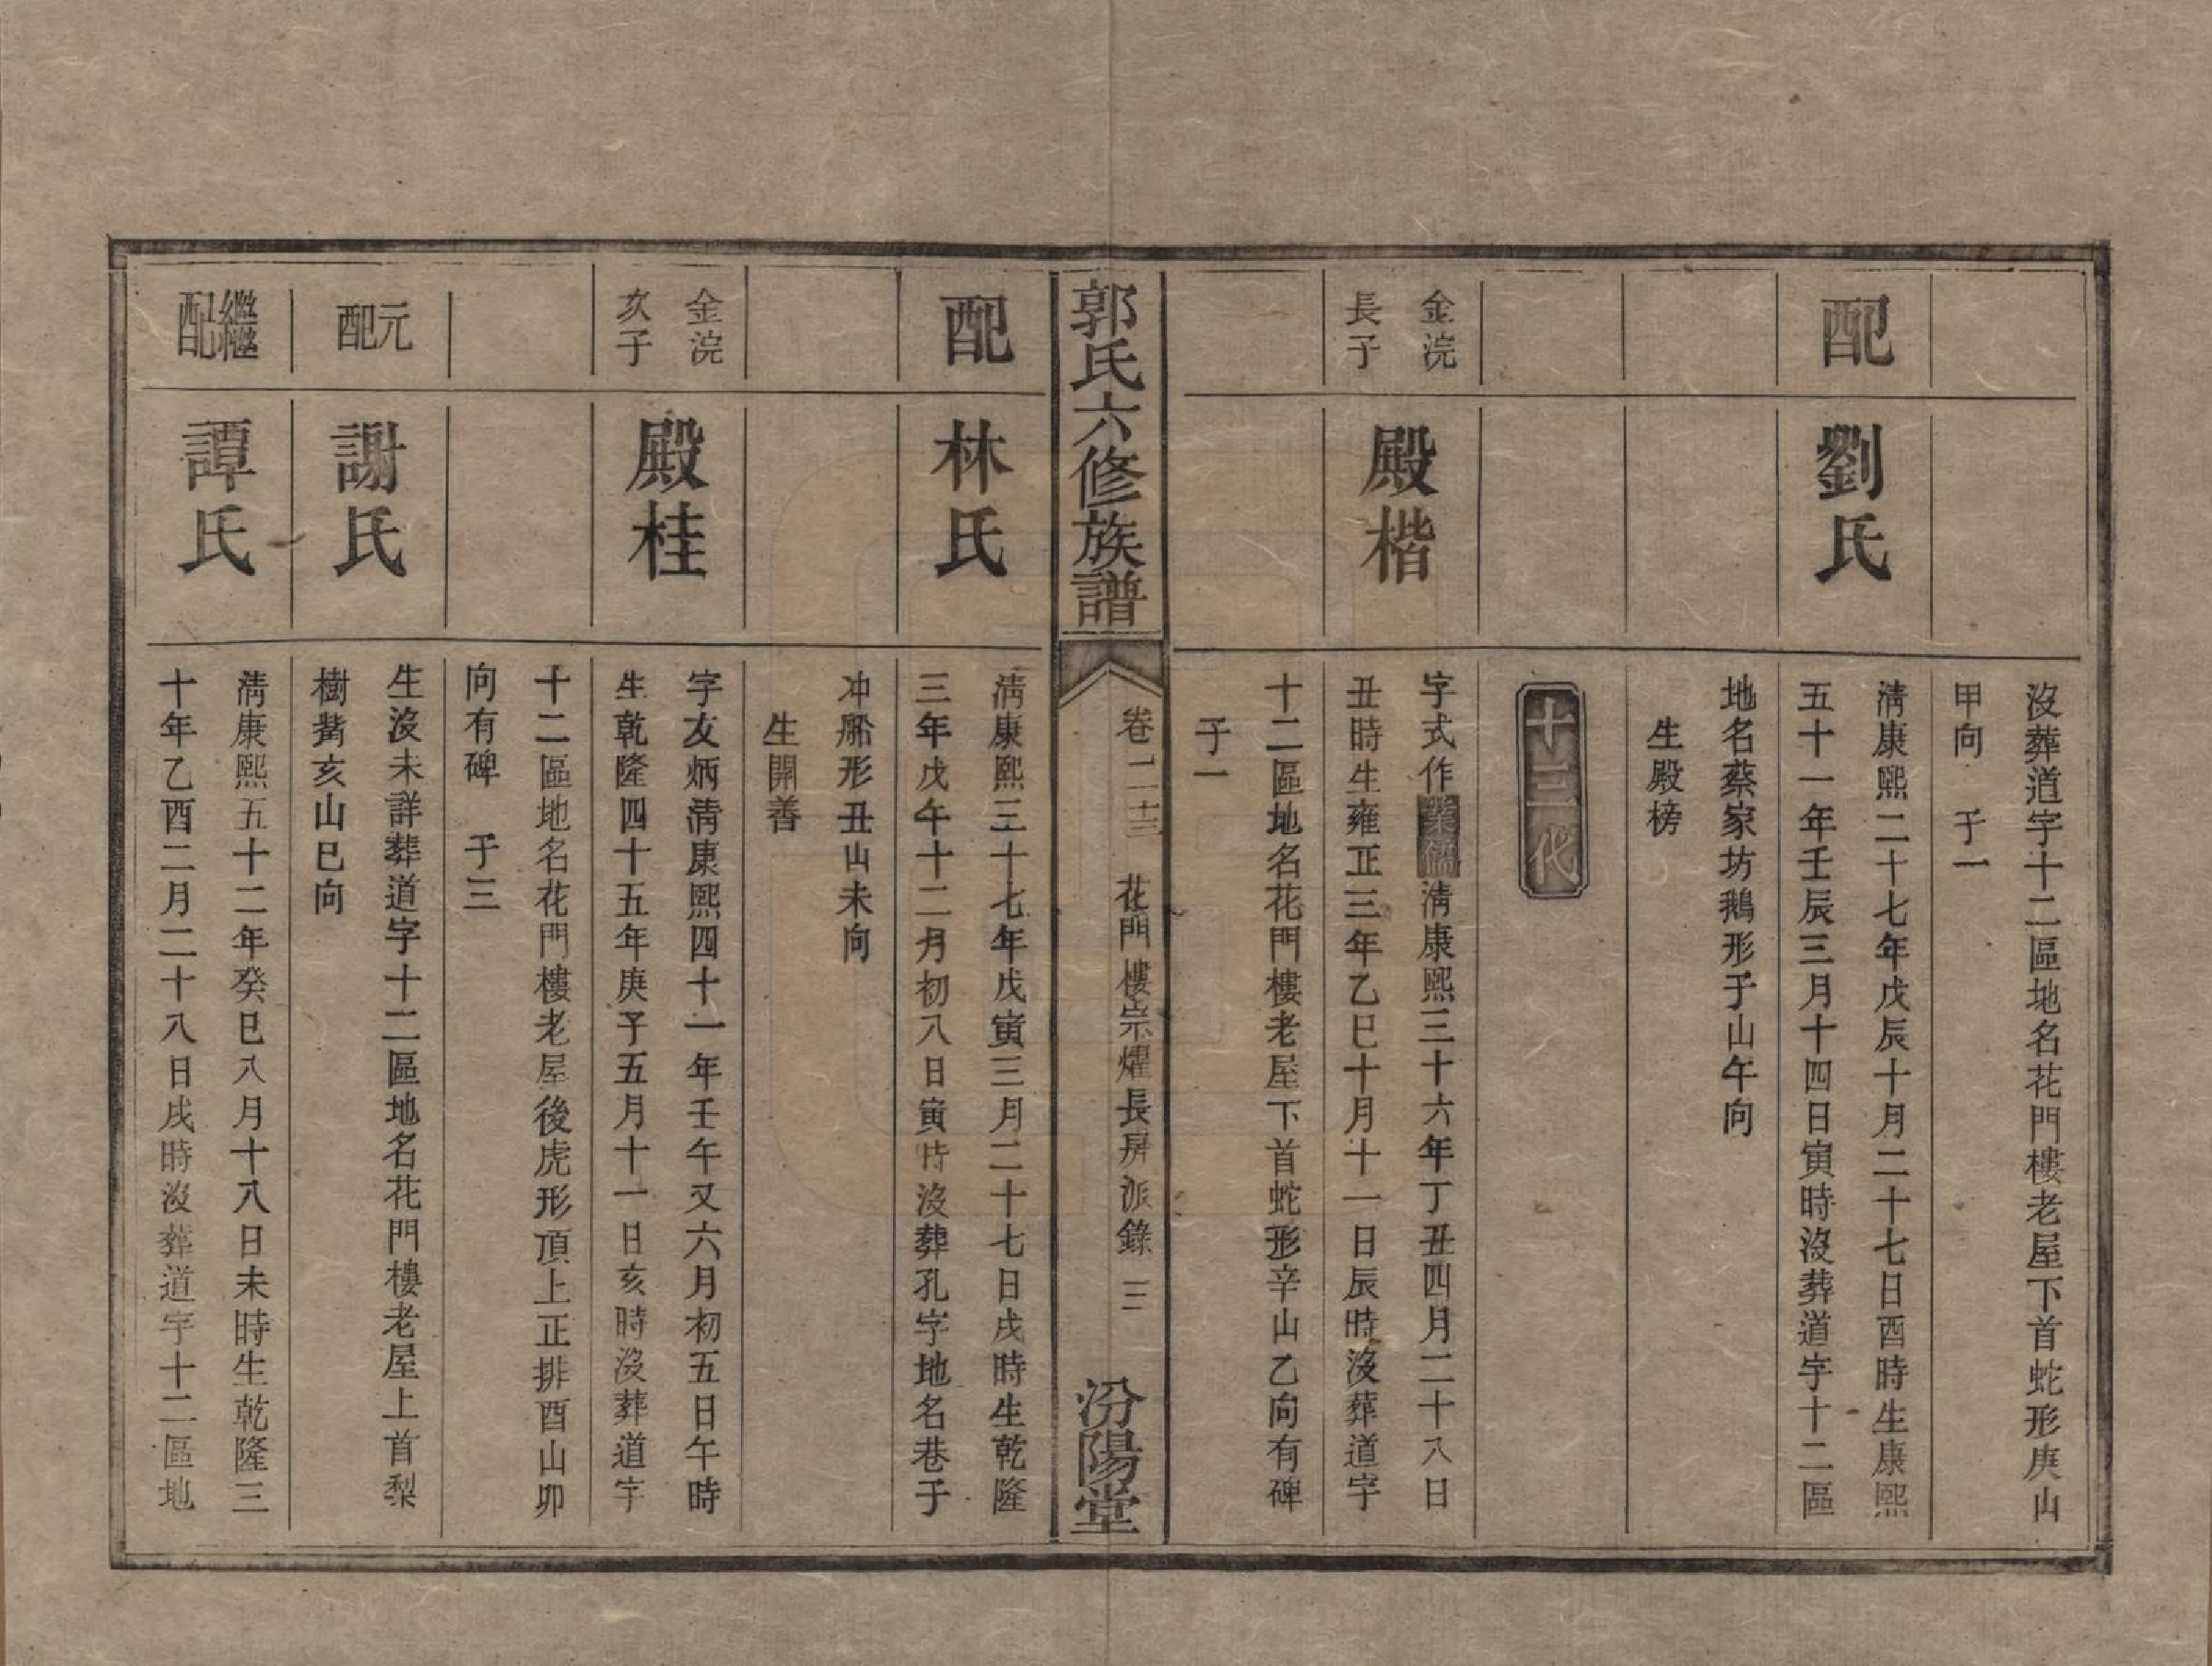 沒葬道字十二區地名花門樓老屋下首蛇形庚山
甲向　子一
配
劉氏
清康熙二十七年戊辰十月二十七日酉時生康熙
五十一年壬辰三月十四日寅時沒葬道字十二區
地名蔡家坊鵝形子山午向
生殿榜
十三代
金浣
長子
殿楷
字式作業儒清康熙三十六年丁丑四月二十八日
丑時生雍正三年乙巳十月十一日辰時沒葬道字
十二區地名花門樓老屋下首蛇形辛山乙向有碑
子一
郭氏六修族譜
卷二十三　花門樓宗燿長房派錄　三
汾陽堂
配
林氏
清康熙三十七年戊寅三月二十七日戌時生乾隆
三年戊午十二月初八日寅時沒葬孔字地名巷子
冲船形丑山未向
生開善
金浣
次子
殿桂
字友炳清康熙四十一年壬午又六月初五日午時
生乾隆四十五年庚子五月十一日亥時沒葬道字
十二區地名花門樓老屋後虎形頂上正排酉山卯
向有碑　子三
元配
謝氏
生沒未詳葬道字十二區地名花門樓老屋上首梨
樹亥山巳向
繼配
譚氏
清康熙五十二年癸巳八月十八日未時生乾隆三
十年乙酉二月二十八日戌時沒葬道字十二區地